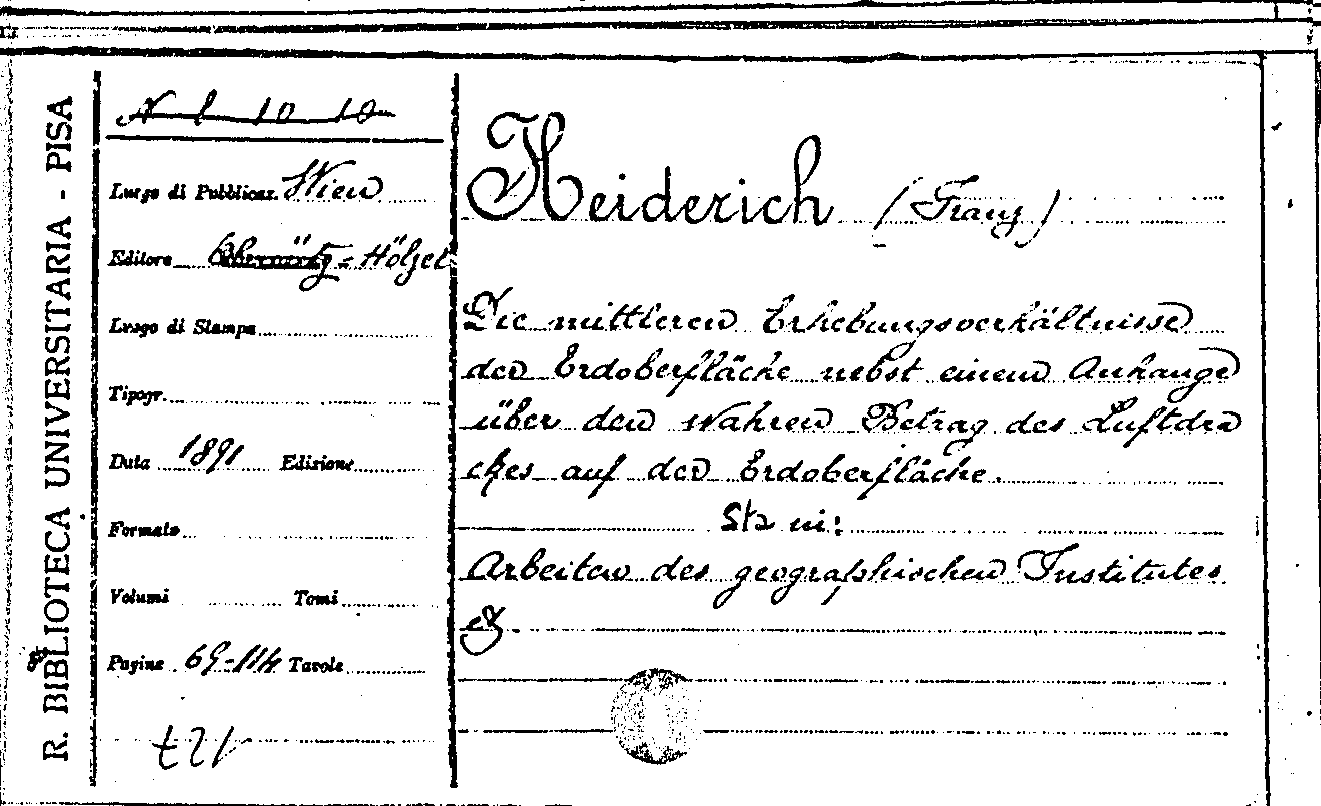 R. BIBLIOTECA UNIVERSITARIA - PISA
N l 10 10
Luogo di Pubblicaz. Wien
Editore Hölzel
Luogo di Stampa
Tipogr.
Data 1891 Edizione
Formato
Volumi Tomi
Pagine 69-114 Tavole
Heiderich (Franz)
Die mittleren Erhebungsverhältnisse
der Erdoberfläche nebst einem Anhange
über den wahren Betrag des Luftdru
ckes auf der Erdoberfläche.
Sta in:
Arbeiten des geographischen Institutes